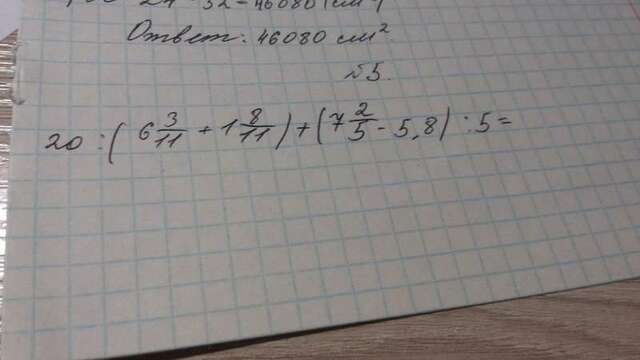 24 · 32 = 46080 (см²)
Ответ: 46080 см²
№5.
20 : (6 3/11 + 1 8/11) + (7 2/5 - 5,8) : 5 =